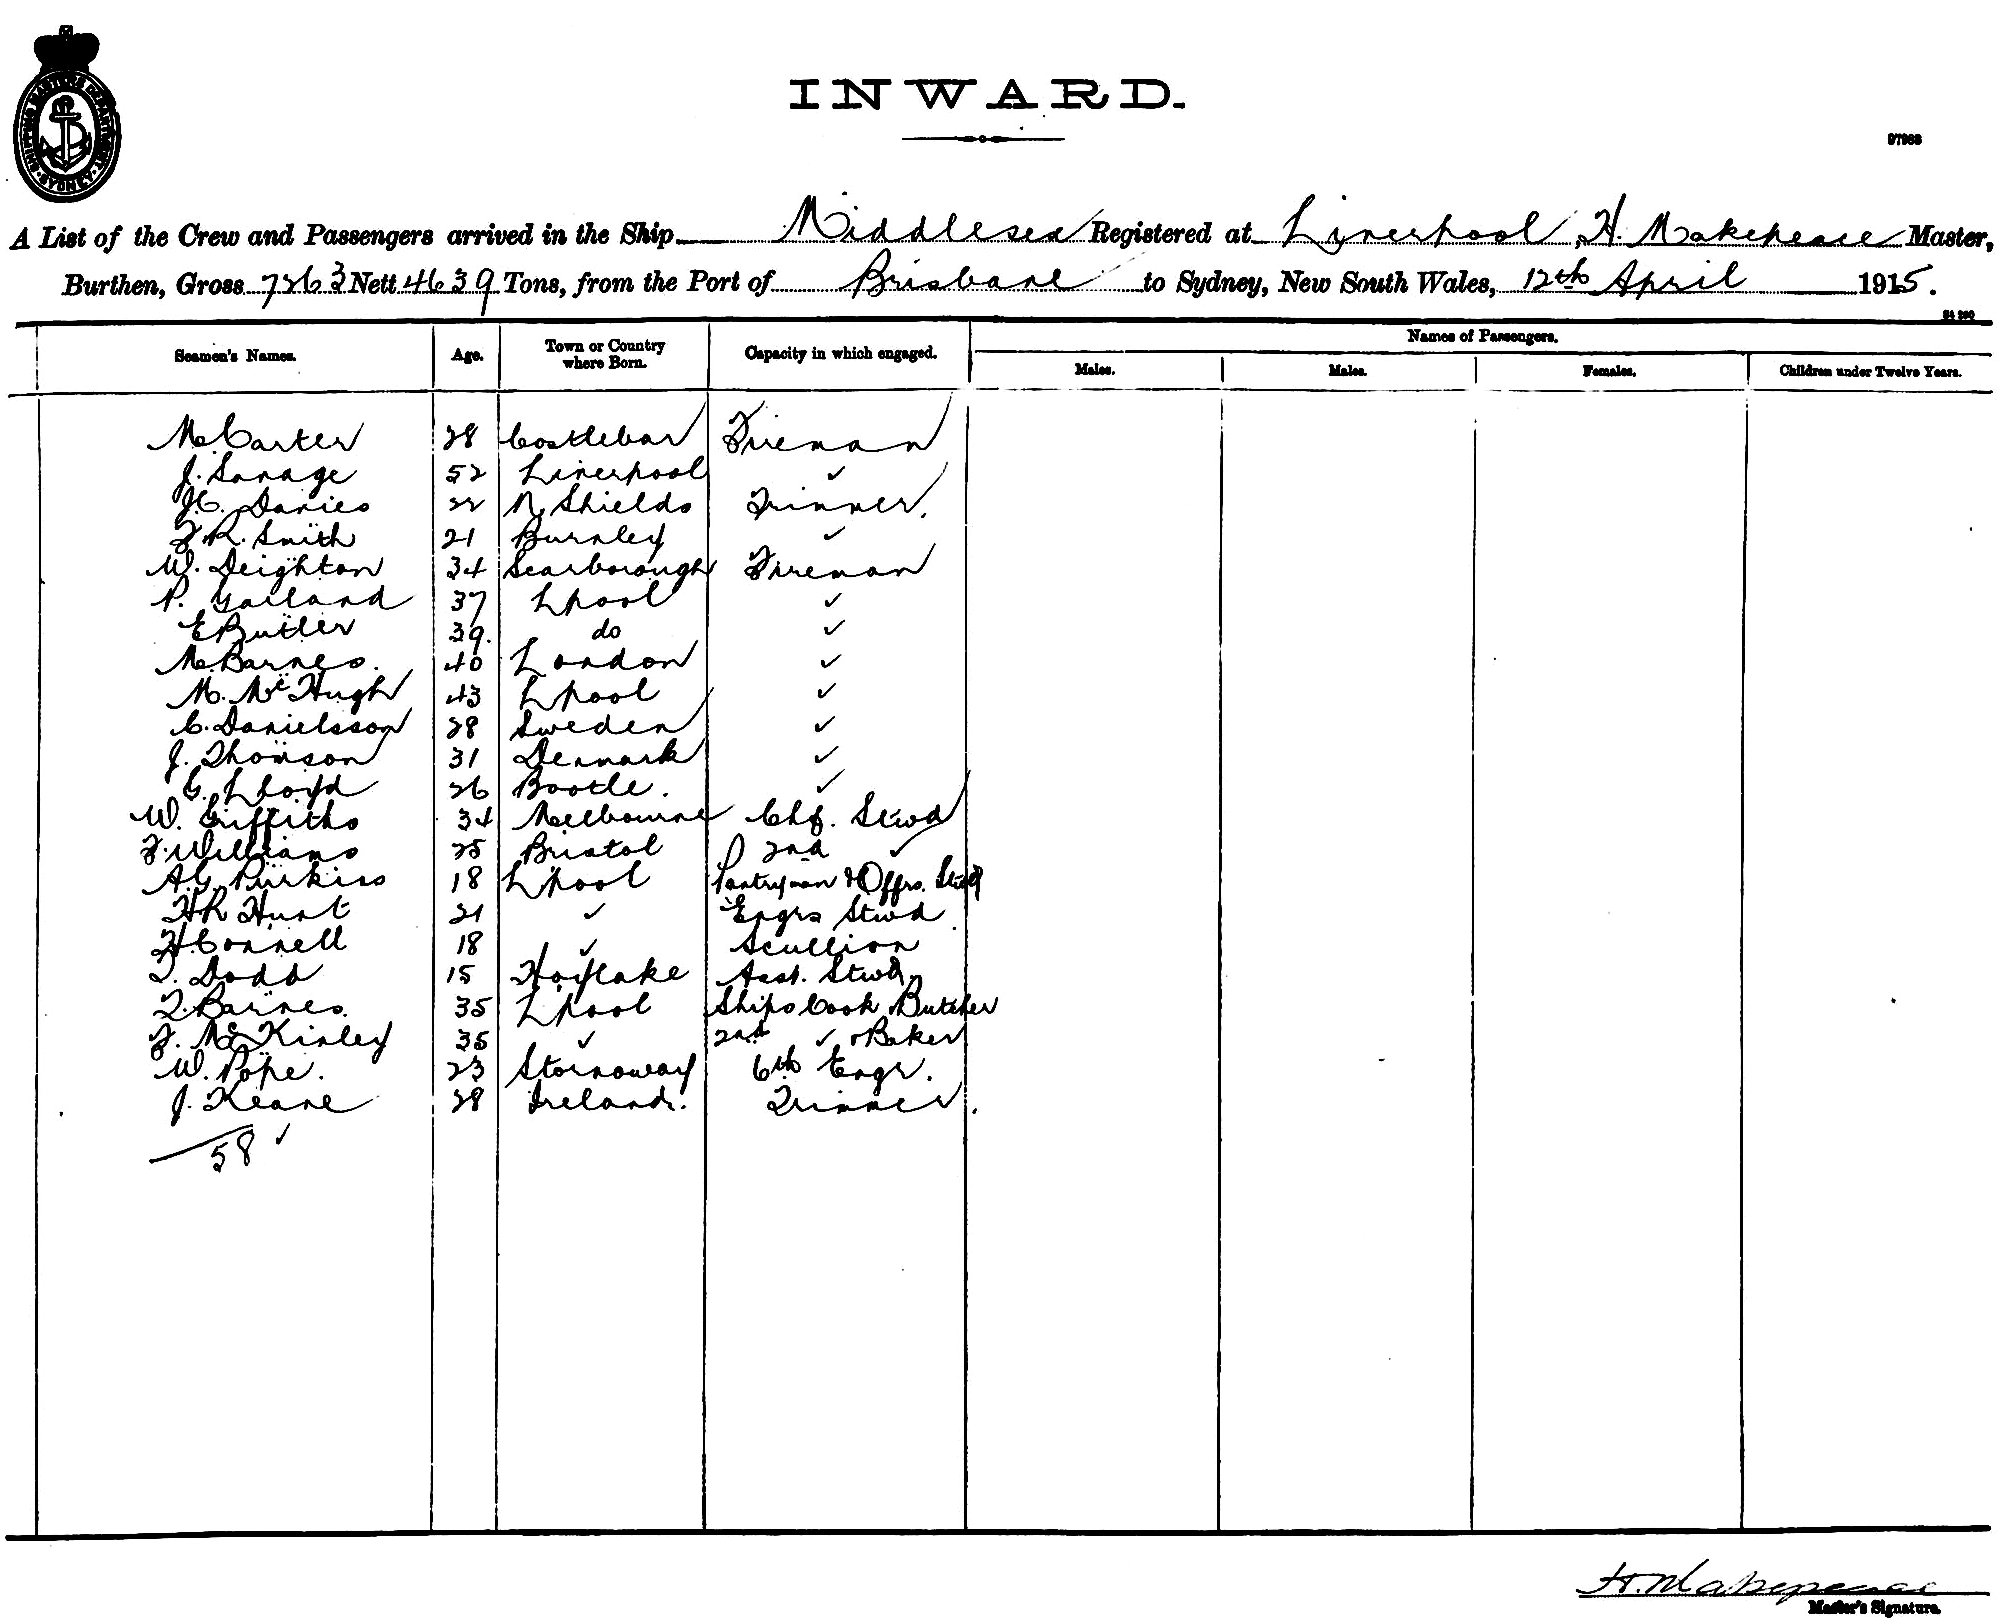 SHIPPING MASTERS DEPARTMENT
SYDNEY
INWARD.
97963
A List of the Crew and Passengers arrived in the Ship Middlesex Registered at Liverpool, H. Makepeace Master,
Burthen, Gross 7263 Nett 4639 Tons, from the Port of Brisbane to Sydney, New South Wales, 12th April 1915.
Seamen's Names. Age. Town or Country where Born. Capacity in which engaged. Names of Passengers.
Males. Males. Females. Children under Twelve Years.
M. Carter 28 Castlebar Fireman
J. Savage 52 Liverpool ✓
J.C. Davies 22 N. Shields Trimmer.
F.R. Smith 21 Burnley ✓
W. Deighton 34 Scarborough Fireman
P. Garland 37 Lpool ✓
E Butler 39. do ✓
M. Barnes. 40 London ✓
M. McHugh 43 Lpool ✓
C. Danielsson 28 Sweden ✓
J. Thomson 31 Denmark ✓
G. Lloyd 26 Bootle. ✓
W. Griffiths 34 Melbourne Chf. Stwd
F. Williams 25 Bristol 2nd ✓
A.G. Purkiss 18 Lpool Pantryman & Offrs. Stwd
H R Hunt 21 ✓ Engrs Stwd.
H. Connell 18 ✓ Scullion
T. Dodd 15 Hoylake Asst. Stwd.
T. Barnes. 35 Lpool Ships Cook & Butcher
F. McKinley 35 ✓ 2nd ✓ & Baker
W. Pope. 23 Stornoway 6th Engr.
J. Keane 28 Ireland. Trimmer.
58 ✓
H. Makepeace
Master's Signature.